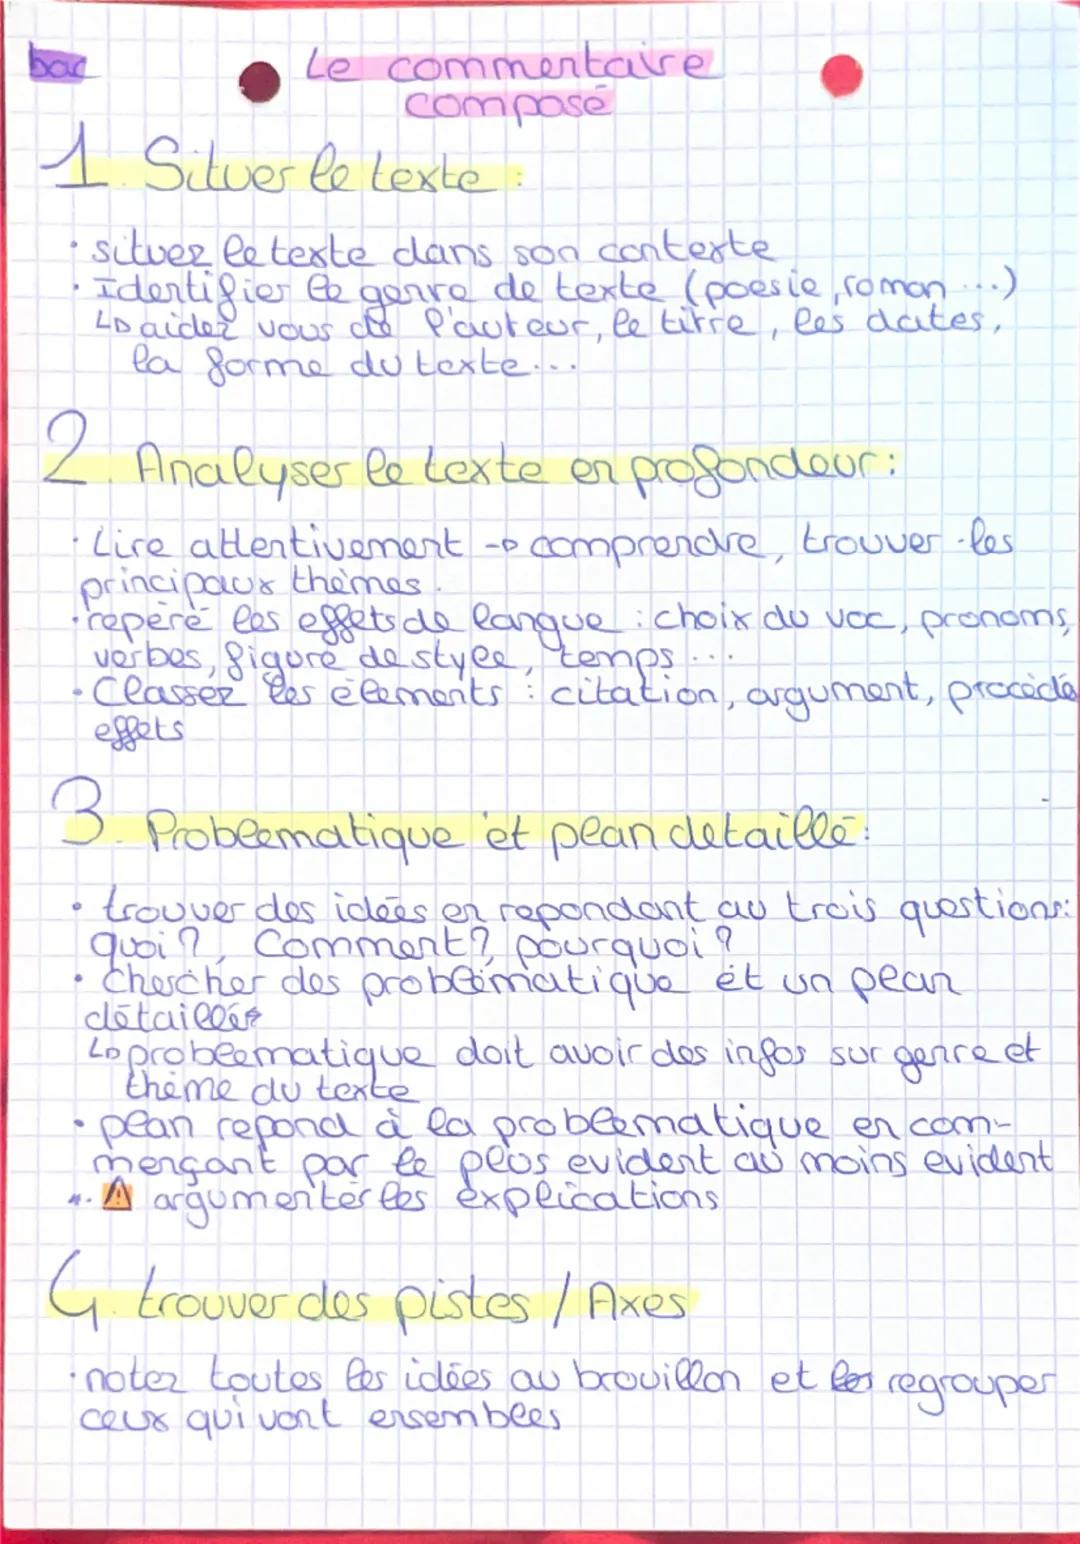 bac
Le commentaire
composé
1. Situer le texte :
· situez le texte dans son contexte
· Identifier le genre de texte (poesie, roman ...)
↳ aidez vous de l'auteur, le titre, les dates,
la forme du texte...
2. Analyser le texte en profondeur :
· Lire attentivement → comprendre, trouver les
principaux thèmes.
· repéré les effets de langue : choix du voc, pronoms,
verbes, figure de style, temps ...
· Classez les élements : citation, argument, procédé
effets
3. Problematique et plan detaillé :
· trouver des idées en repondant au trois questions :
quoi ?, Comment ?, pourquoi ?
· Chercher des problématique et un plan
détaillés
↳ problematique doit avoir des infos sur genre et
thème du texte
· plan repond à la problematique en com-
mençant par le plus evident au moins evident
⚠ argumenter les explications
4. trouver des pistes / Axes
· notez toutes les idées au brouillon et les regrouper
ceux qui vont ensembles